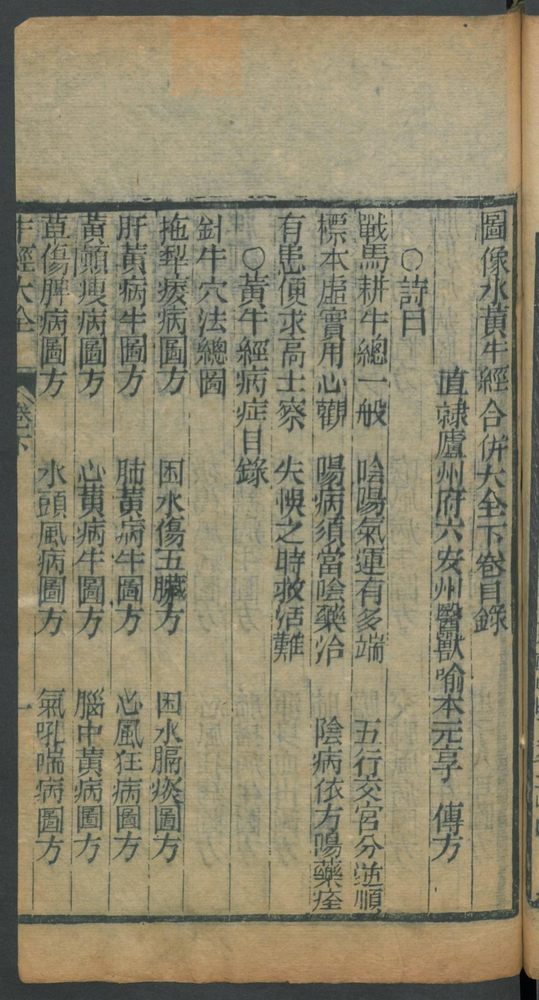 圖像水黃牛經合併大全下卷目錄
直隷廬州府六安州醫獸喻本元亨 傳方
○詩曰
戰馬耕牛總一般 陰陽氣運有多端 五行交宮分逆順
標本虛實用心觀 陽病須當陰藥治 陰病依方陽藥痊
有患便求高士察 失悞之時救活難
○黃牛經病症目錄
針牛穴法總圖
拖犁痠病圖方 困水傷五臟方 困水膈痰圖方
肝黃病牛圖方 肺黃病牛圖方 心風狂病圖方
黃顙瘦病圖方 心黃病牛圖方 腦中黃病圖方
草傷脾病圖方 水頭風病圖方 氣吼喘病圖方
牛經大全 卷下 一